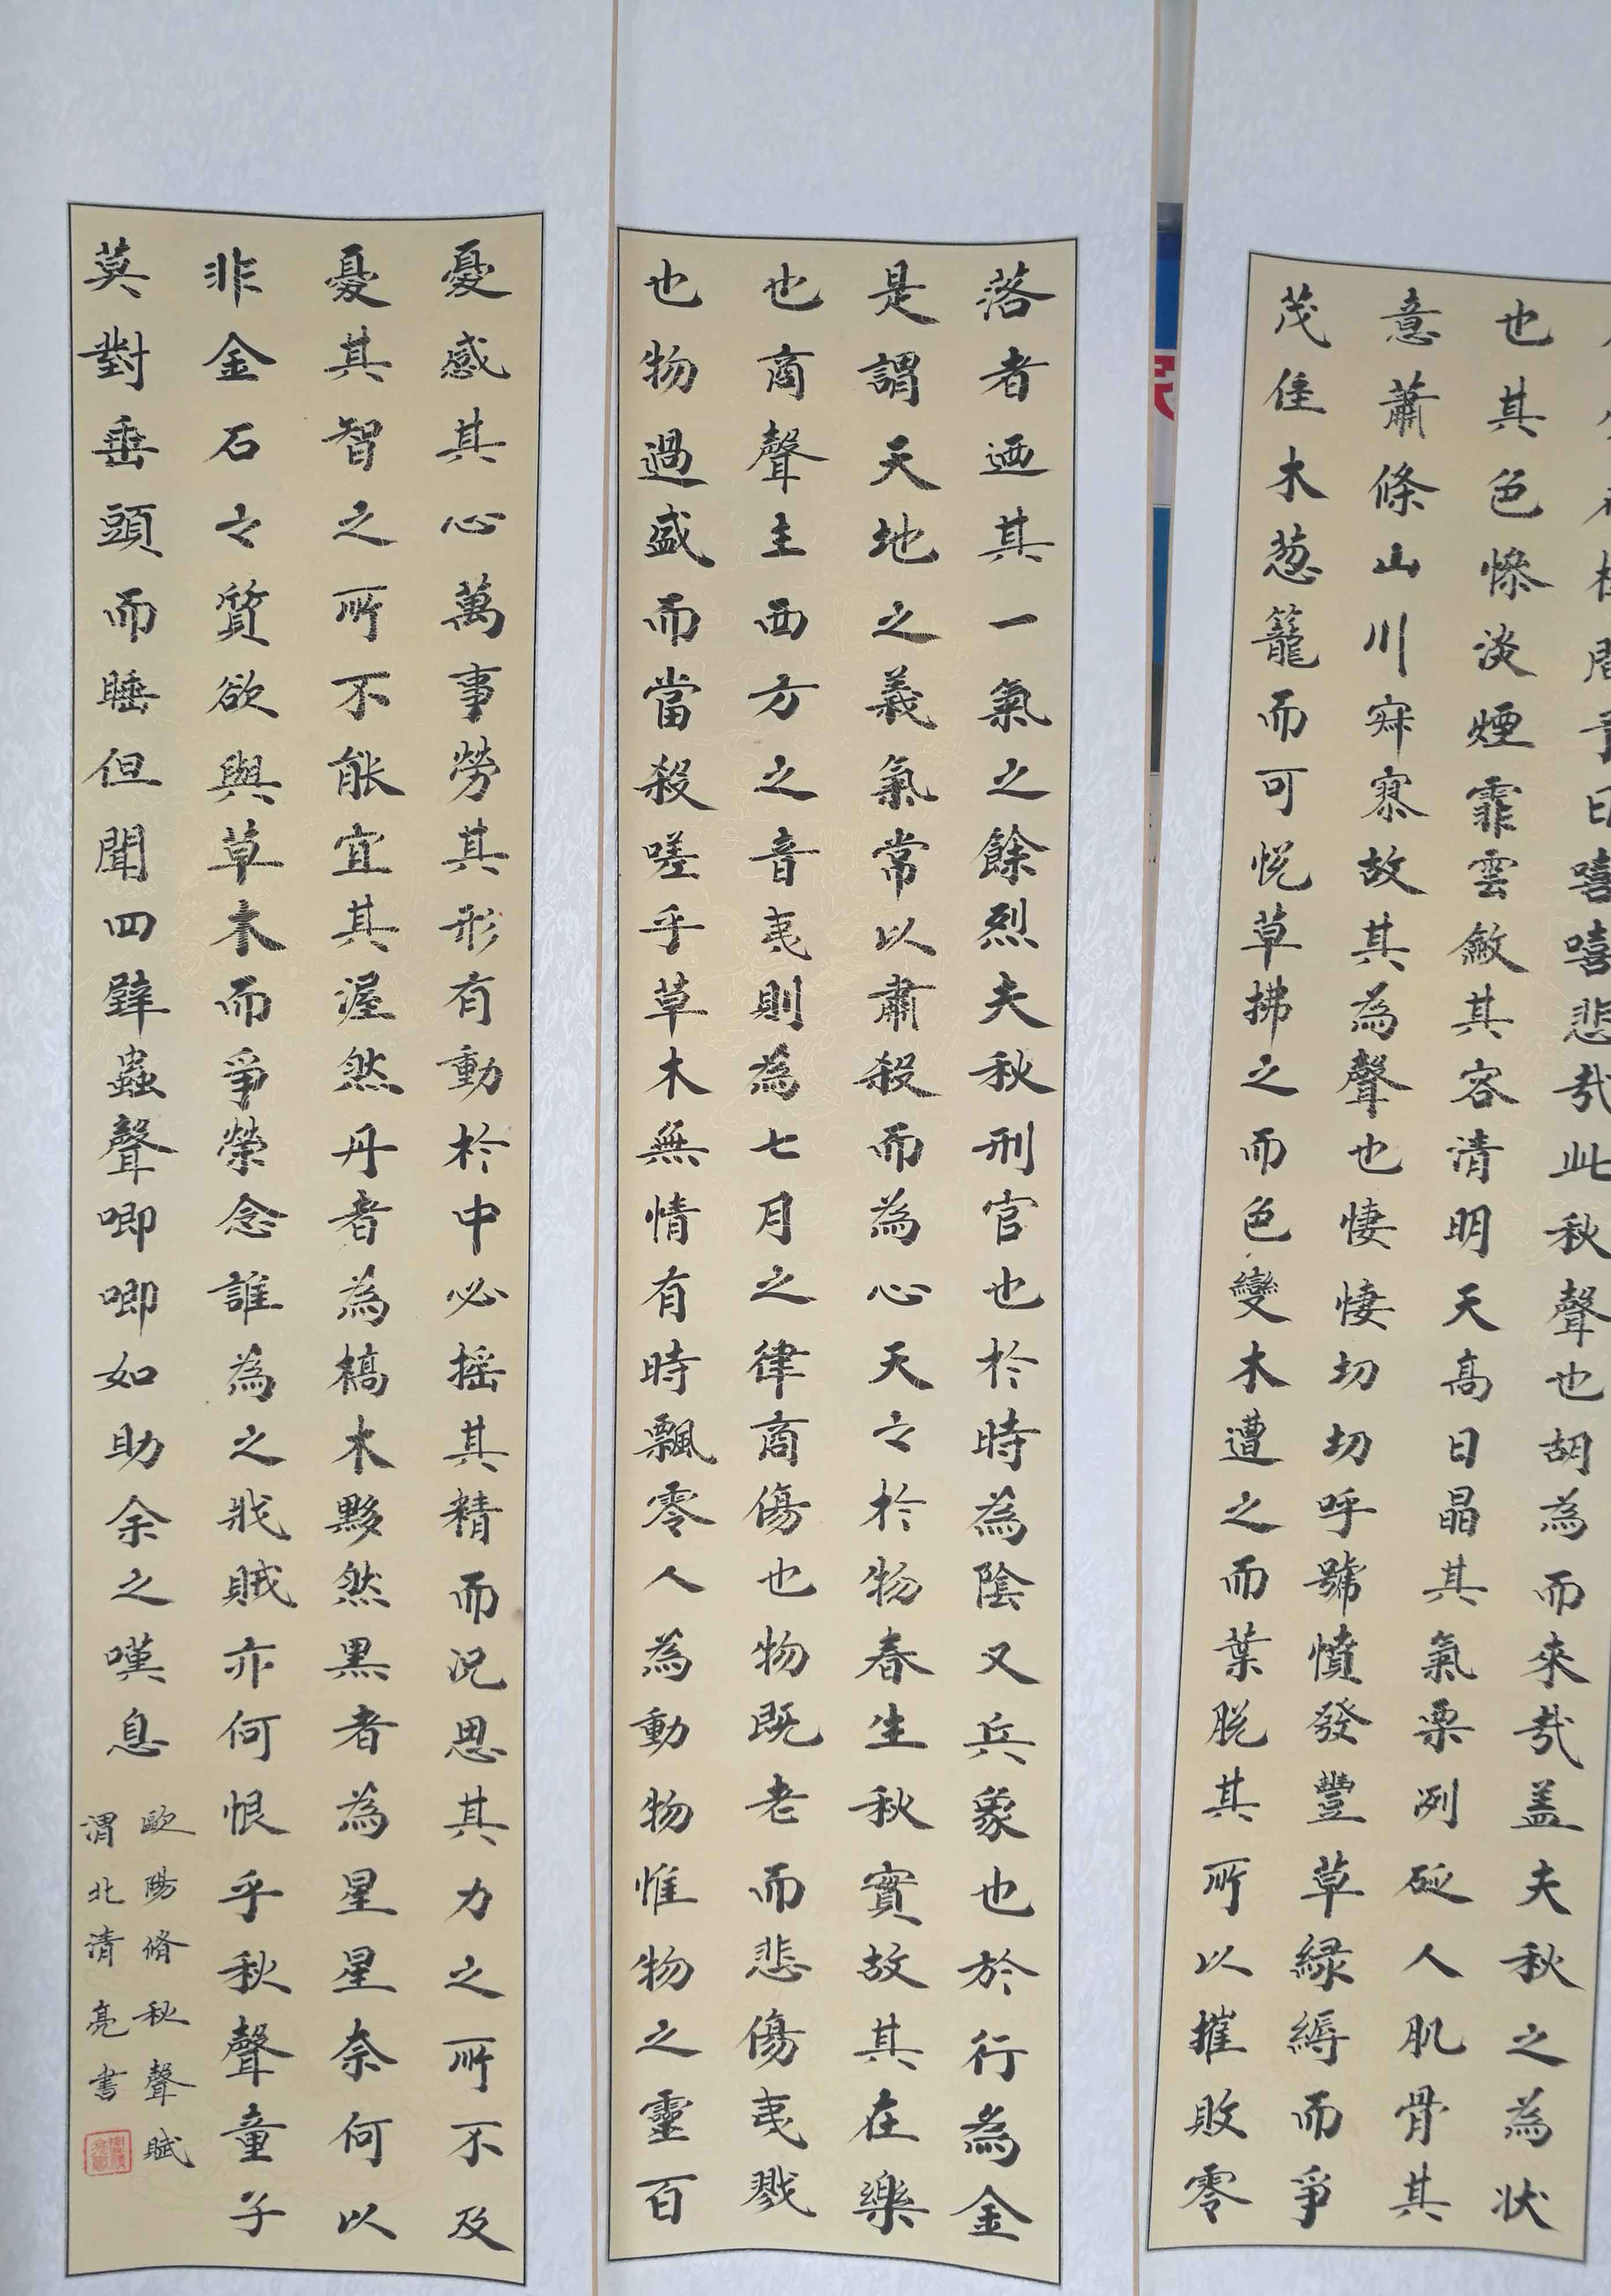 嘻嘻悲哉此秋聲也胡為而來哉盖夫秋之為狀
也其色慘淡煙霏雲斂其容清明天高日晶其氣栗冽砭人肌骨其
意蕭條山川寂寥故其為聲也悽悽切切呼號憤發豐草緑縟而爭
茂佳木葱籠而可悅草拂之而色變木遭之而葉脱其所以摧敗零
落者迺其一氣之餘烈夫秋刑官也於時為陰又兵象也於行為金
是謂天地之義氣常以肅殺而為心天之於物春生秋實故其在樂
也商聲主西方之音夷則為七月之律商傷也物既老而悲傷夷戮
也物過盛而當殺嗟乎草木無情有時飄零人為動物惟物之靈百
憂感其心萬事勞其形有動於中必摇其精而況思其力之所不及
憂其智之所不能宜其渥然丹者為槁木黟然黑者為星星奈何以
非金石之質欲與草木而爭榮念誰為之戕賊亦何恨乎秋聲童子
莫對垂頭而睡但聞四壁蟲聲唧唧如助余之嘆息
歐陽脩秋聲賦
渭北清亮書